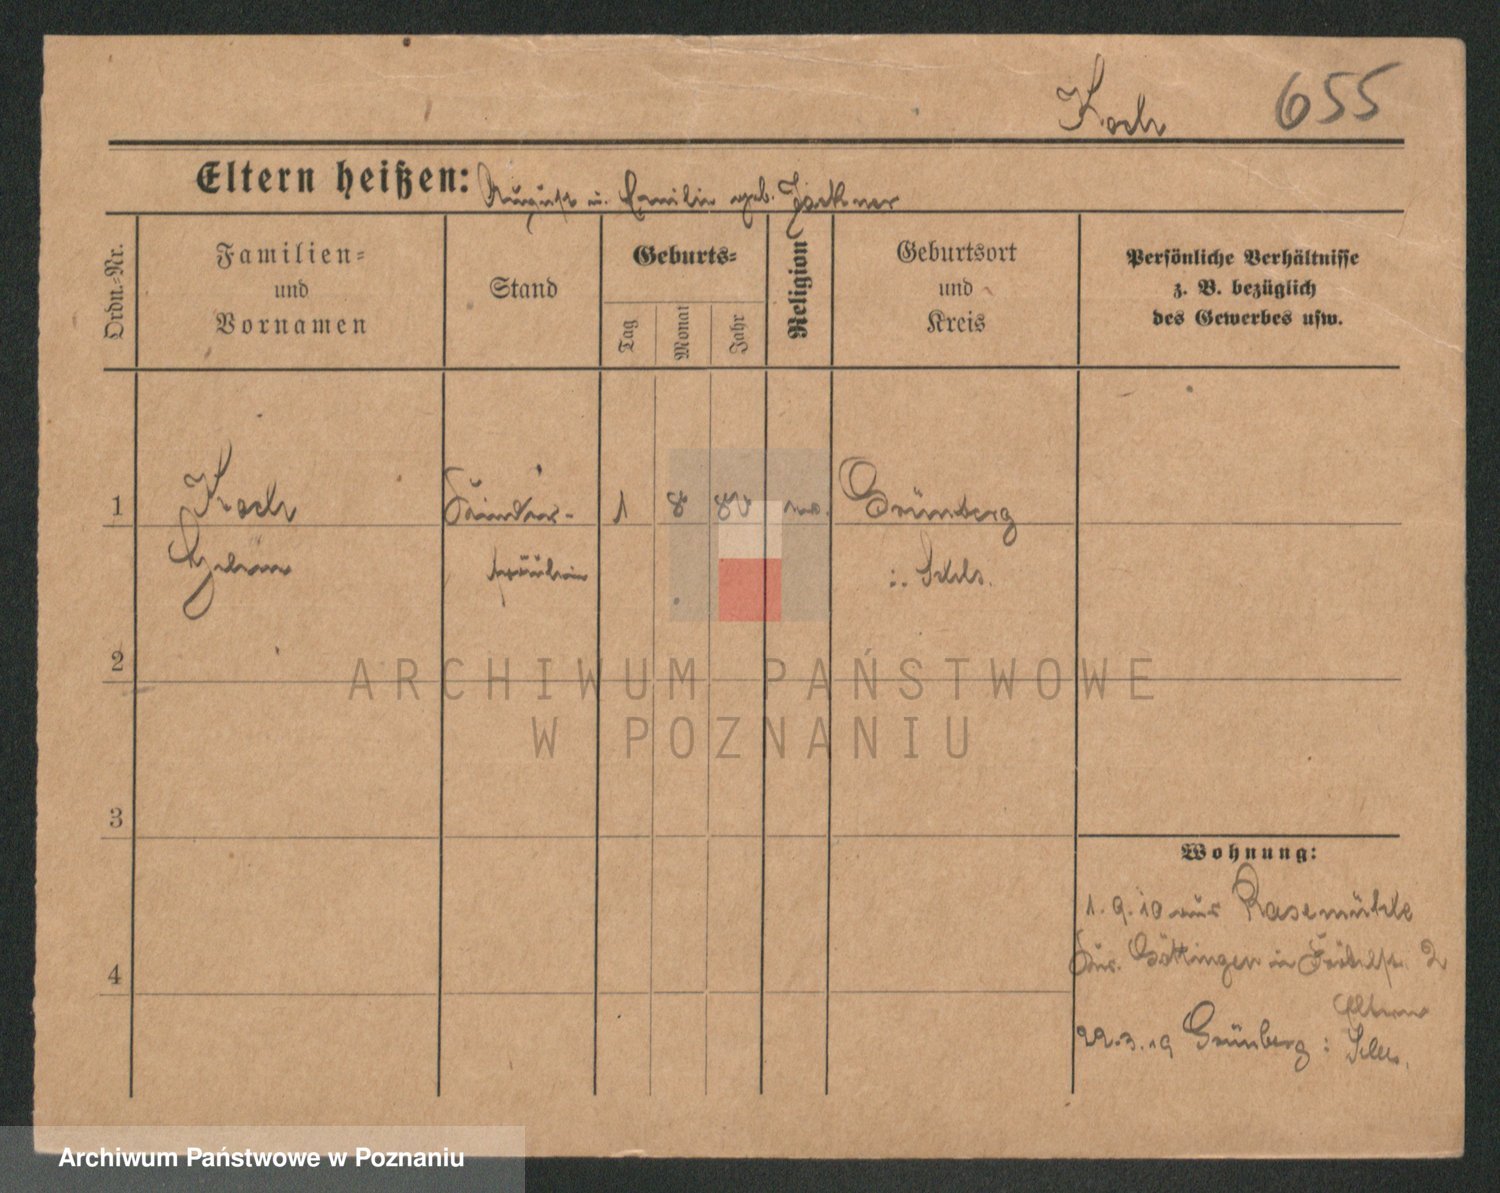 Koch 655
Eltern heißen: August u. Emilie geb.
Ordn.=Nr.
Familien=
und
Vornamen
Stand
Geburts=
Tag
Monat
Jahr
Religion
Geburtsort
und
Kreis
Persönliche Verhältnisse
z. B. bezüglich
des Gewerbes usw.
1 Koch Kinder- 1 8 80 Grünberg
fräulein i. Schls.
2
3
4
Wohnung:
1.9.10 aus Rasemühle
Göttingen in 2
Eltern
22.3.19 Grünberg i Schles.
ARCHIWUM PAŃSTWOWE
W POZNANIU
Archiwum Państwowe w Poznaniu